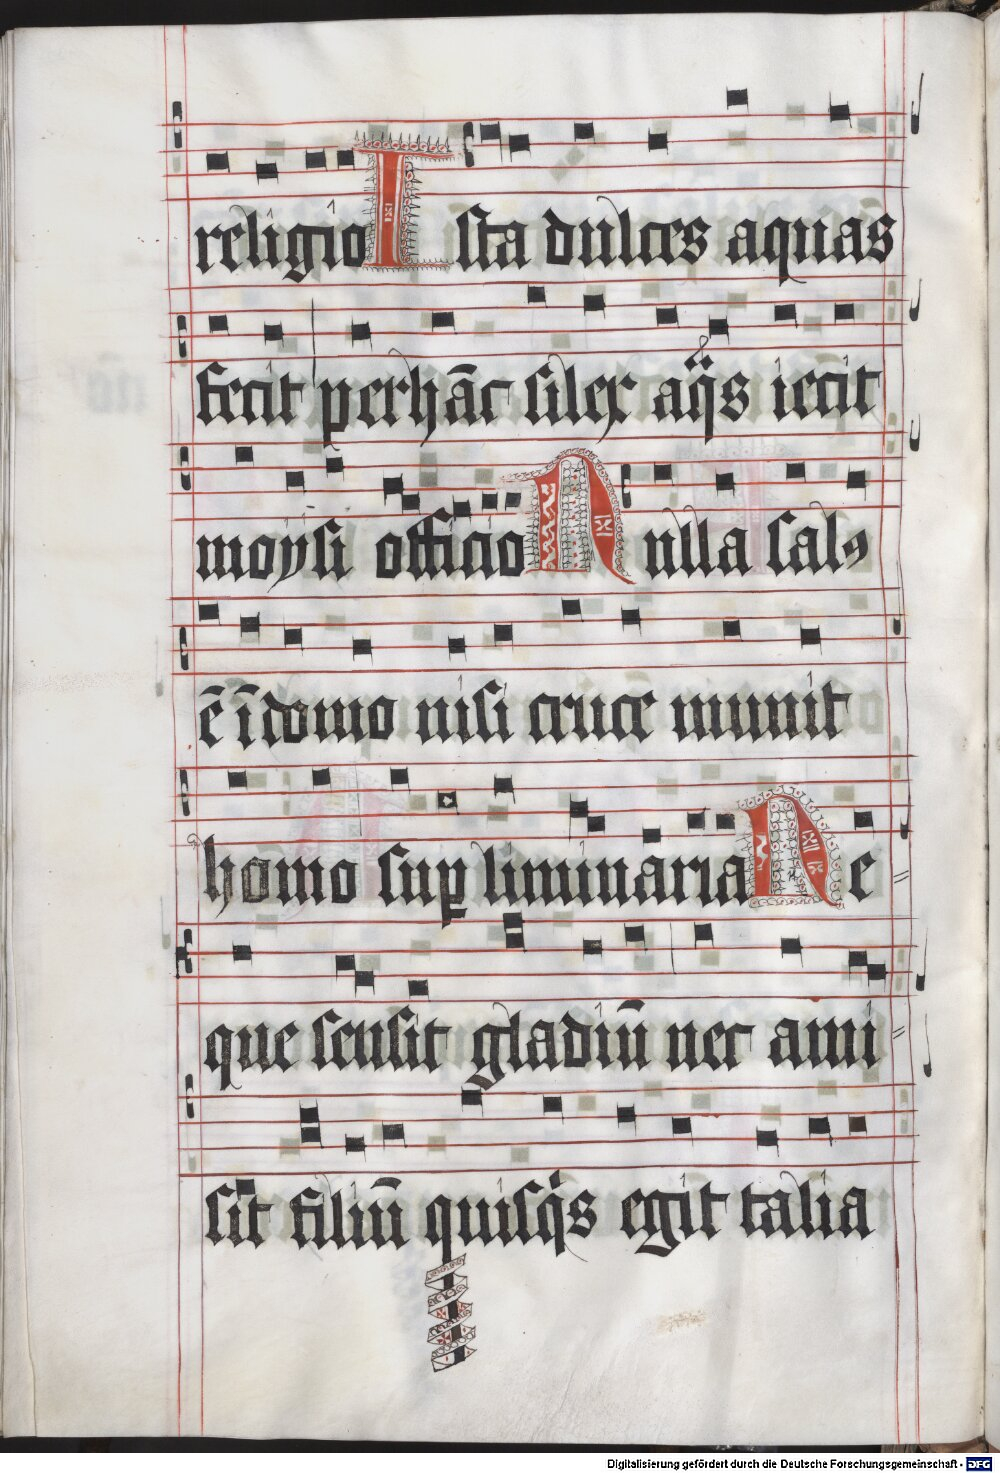 religio Ista dulces aquas
fecit per hāc silex aq̄s iecit
moysi officio Nulla salꝰ
ē ī domo nisi cruce munit
homo suꝑ liminaria Ne
que sensit gladiū nec ami
sit filiū quisq̇s egit talia
Digitalisierung gefördert durch die Deutsche Forschungsgemeinschaft - DFG